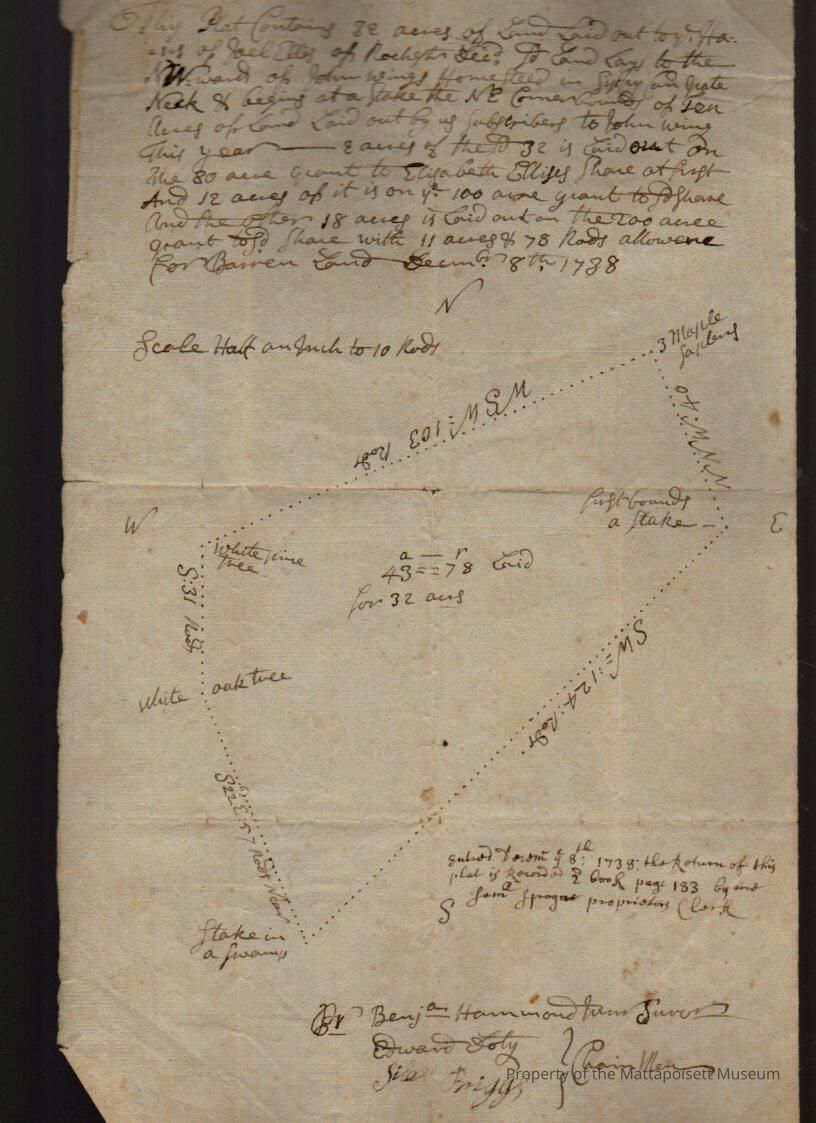 This Plat Contains 32 acres of Land Laid out to ye Ha-
=rs of Joel Ellis of Rochestr Decd. Sd Land Lays to the
NWward of John wings Homesteed in Sippycan Grate
Neck & begins at a Stake the NE Corner bounds of Ten
Acres of Land Laid out by us Subscribers to John wing
This year —— 2 acres of the sd 32 is Laid out on
the 80 acre grant to Elizabeth Ellises Share at first
And 12 acres of it is on ye 100 acre grant to sd Share
And the other 18 acres is Laid out on the 200 acree
grant to sd Share with 11 acres & 78 Rods allowence
for Barren Land Decemr. 8th. 1738
N
Scale Half an Inch to 10 Rods
3 Maple
saplens
WSW=103 Rods
NNW: 40
first bounds
a Stake
W
E
white pine
tree
a — r
43==78 Laid
for 32 acrs
S:31 Rods
SW=:124:Rods
white oak tree
S22E:57 Rods Near
entred Decemr ye 8th: 1738: the Return of this
plat is Recorded 2 book page 183 by me
Saml Sprague proprietors Clerk
S
Stake in
a Swamp
Pr Benja Hammond Junr Survor
Edward Doty
Silas Briggs } Chain Men
Property of the Mattapoisett Museum